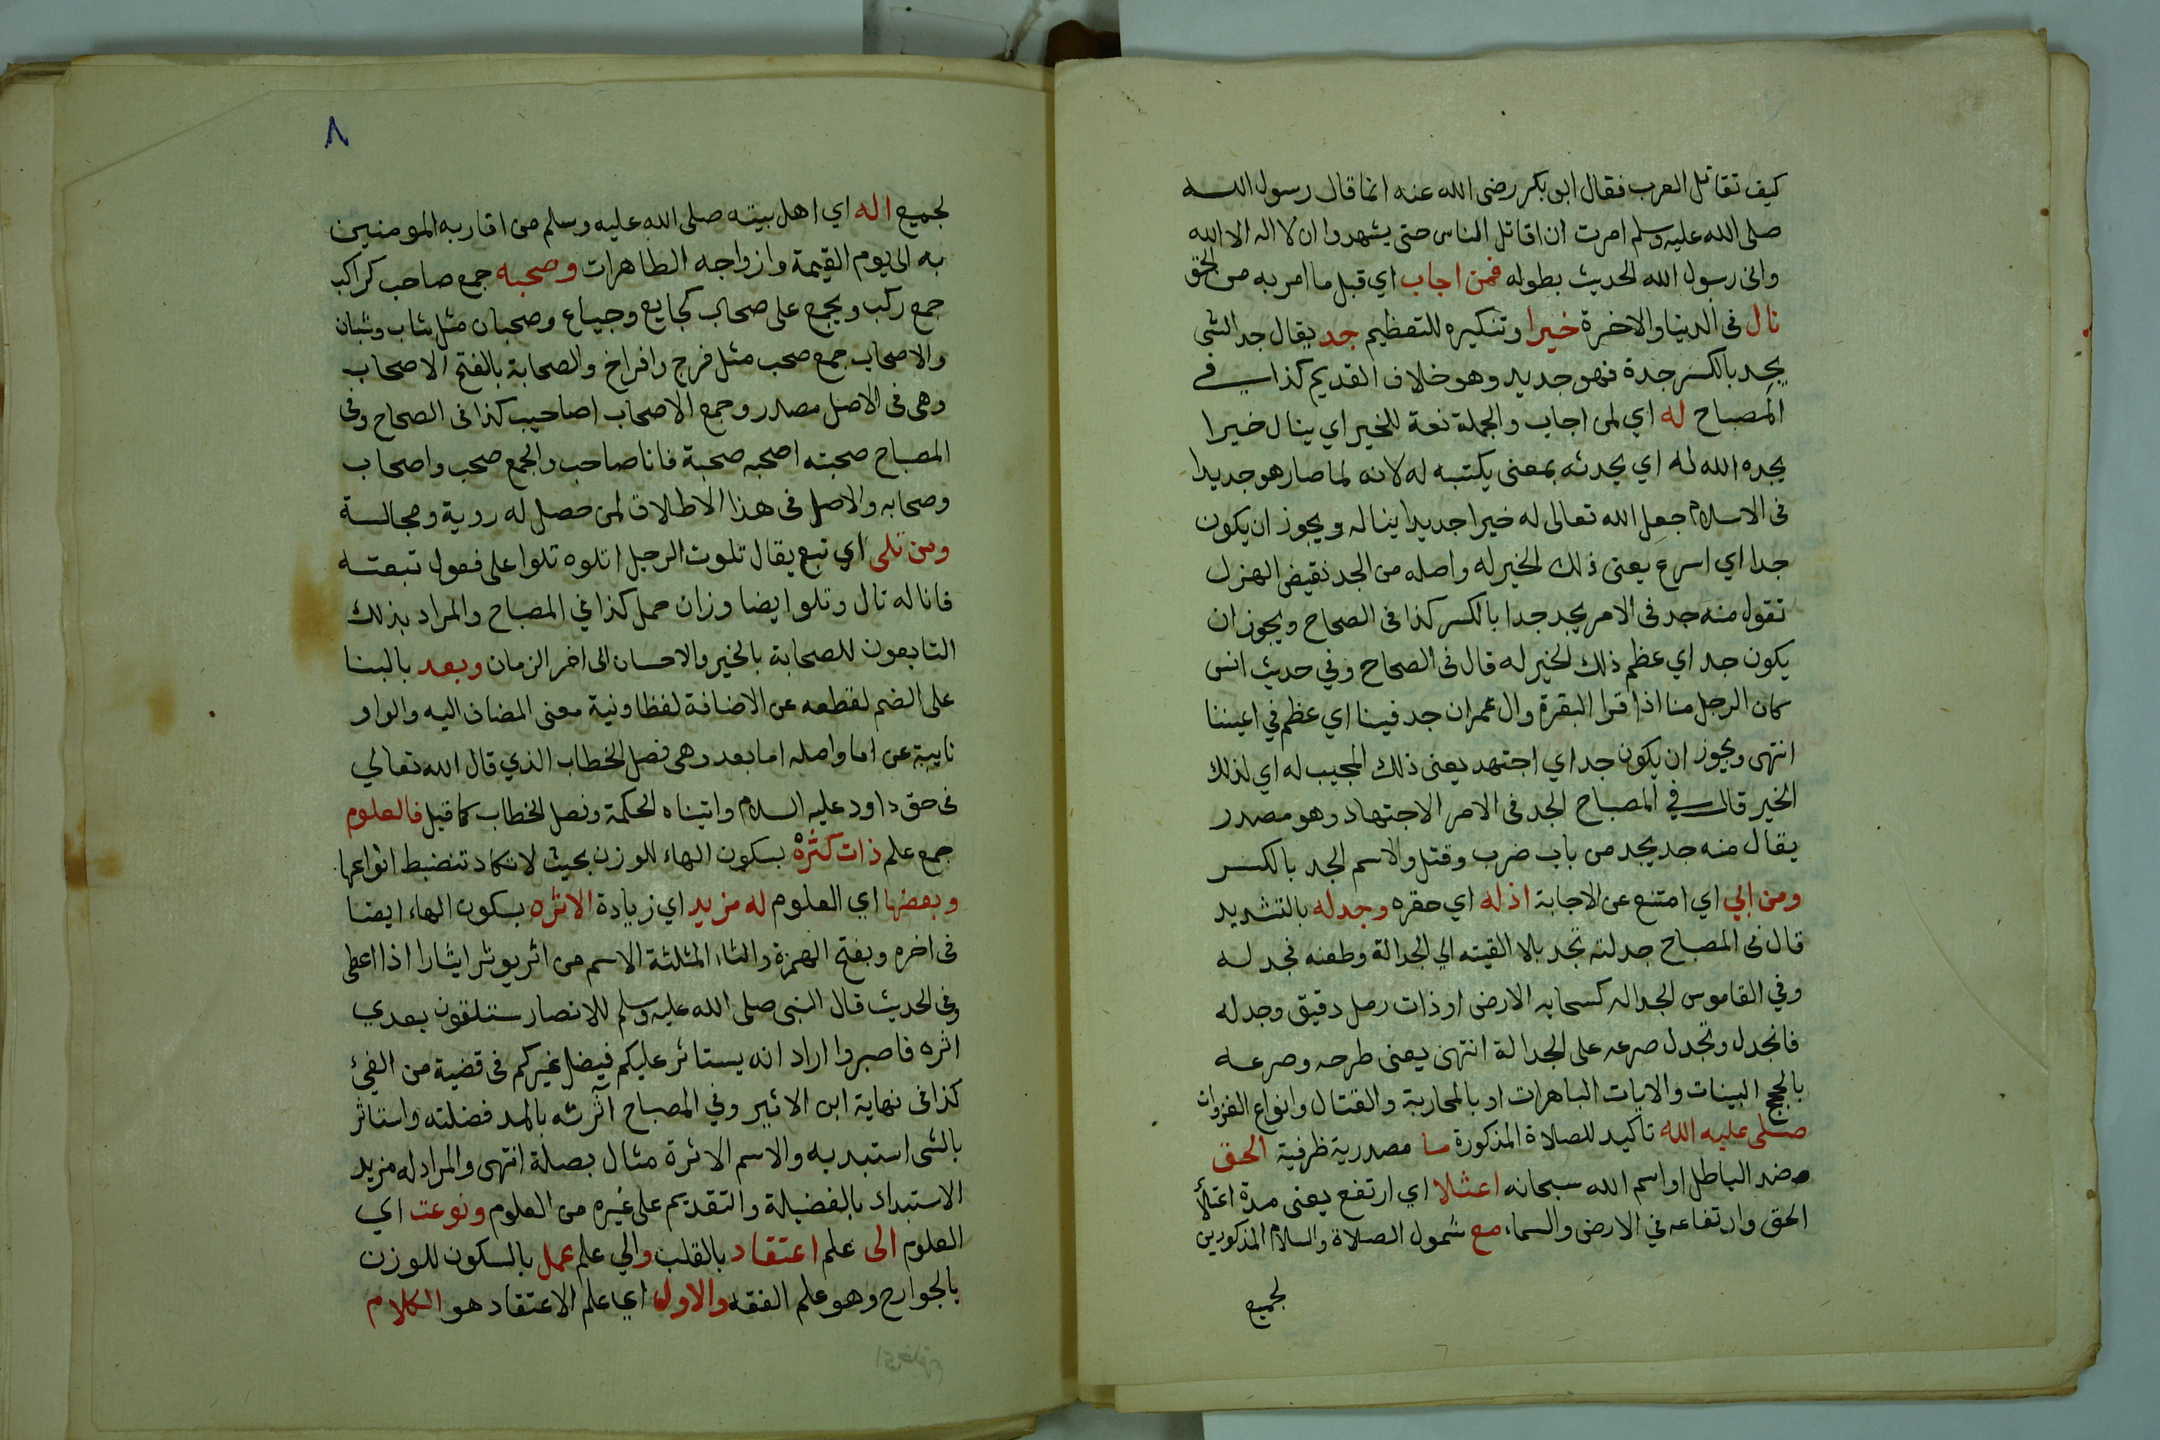 كيف تقاتل العرب فقال ابو بكر رضى الله عنه انما قال رسول الله
صلى الله عليه وسلم امرت ان اقاتل الناس حتى يشهدوا ان لا اله الا الله
وانى رسول الله الحديث بطوله فمن اجاب اي قبل ما امر به من الحق
نال فى الدنيا والاخرة خيرا وتنكيره للتعظيم جد يقال جد الشى
يجد بالكسر جدة فهو جديد وهو خلاف القديم كذا في
المصباح له اي لمن اجاب والجملة نعة للخير اي ينال خيرا
يجده الله له اي يحدثه بمعنى يكتبه له لانه لما صار هو جديدا
فى الاسلام جعل الله تعالى له خيرا جديدا يناله ويجوز ان يكون
جدا اي اسرع يعنى ذلك الخير له واصله من الجد نقيض الهزل
تقول منه جد فى الامر يجد جدا بالكسر كذا فى الصحاح ويجوز ان
يكون جد اي عظم ذلك الخير له قال فى الصحاح وفي حديث انس
كان الرجل منا اذا قرا البقرة وال عمران جد فينا اي عظم في اعيننا
انتهى ويجوز ان يكون جد اي اجتهد يعنى ذلك المجيب له اي لذلك
الخير قال في المصباح الجد فى الامر الاجتهاد وهو مصدر
يقال منه جد يجد من باب ضرب وقتل والاسم الجد بالكسر
ومن ابي اي امتنع عن الاجابة اذله اي حقره وجدله بالتشديد
قال فى المصباح جدلته تجديلا القيته الي الجدالة وطعنه فجدله
وفي القاموس الجداله كسحابه الارض او ذات رمل دقيق وجدله
فانجدل وتجدل صرعه على الجدالة انتهى يعنى طرحه وصرعه
بالحجج البينات والايات الباهرات او بالمحاربة والقتال وانواع الغزوات
صلى عليه الله تاكيد للصلاة المذكورة ما مصدرية ظرفية الحق
ضد الباطل او اسم الله سبحانه اعتلا اي ارتفع يعنى مدة اعتلا
الحق وارتفاعه في الارض والسماء مع شمول الصلاة والسلام المذكورين
لجميع
٨
لجميع اله اي اهل بيته صلى الله عليه وسلم من اقاربه المومنين
به الى يوم القيمة وازواجه الطاهرات وصحبه جمع صاحب كراكب
جمع ركب ويجمع على صحاب كجايع وجياع وصحبان مثل شاب وشبان
والاصحاب جمع صحب مثل فرخ وافراخ والصحابة بالفتح الاصحاب
وهى فى الاصل مصدر وجمع الاصحاب اصاحيب كذا فى الصحاح وفى
المصباح صحبته اصحبه صحبة فانا صاحب والجمع صحب واصحاب
وصحابه والاصل فى هذا الاطلاق لمن حصل له روية ومجالسة
ومن تلى اي تبع يقال تلوت الرجل اتلوه تلوا على فعول تبعته
فانا له تال وتلو ايضا وزان حمل كذا في المصباح والمراد بذلك
التابعون للصحابة بالخير والاحسان الى اخر الزمان وبعد بالبنا
على الضم لقطعه عن الاضافة لفظا ونية معنى المضاف اليه والواو
نايبة عن اما واصله اما بعد وهى فصل الخطاب الذي قال الله تعالي
فى حق داود عليه السلام واتيناه الحكمة وفصل الخطاب كما قيل فالعلوم
جمع علم ذات كثره بسكون الهاء للوزن بحيث لا تكاد تنضبط انواعها
وبعضها اي العلوم له مزيد اي زيادة الاثره بسكون الهاء ايضا
فى اخره وبفتح الهمزة والثاء المثلثة الاسم من اثر يوثر ايثارا اذا اعطى
وفى الحديث قال النبى صلى الله عليه وسلم للانصار ستلقون بعدي
اثره فاصبروا اراد انه يستاثر عليكم فيفضل غيركم فى قضية من الفئ
كذا فى نهاية ابن الاثير وفي المصباح آثرته بالمد فضلته واستاثر
بالشى استبد به والاسم الاثرة مثال بصلة انتهى والمراد له مزيد
الاستبداد بالفضيلة والتقديم على غيره من العلوم ونوعت اي
العلوم الى علم اعتقاد بالقلب والي علم عمل بالسكون للوزن
بالجوارح وهو علم الفقه والاول اي علم الاعتقاد هو الكلام